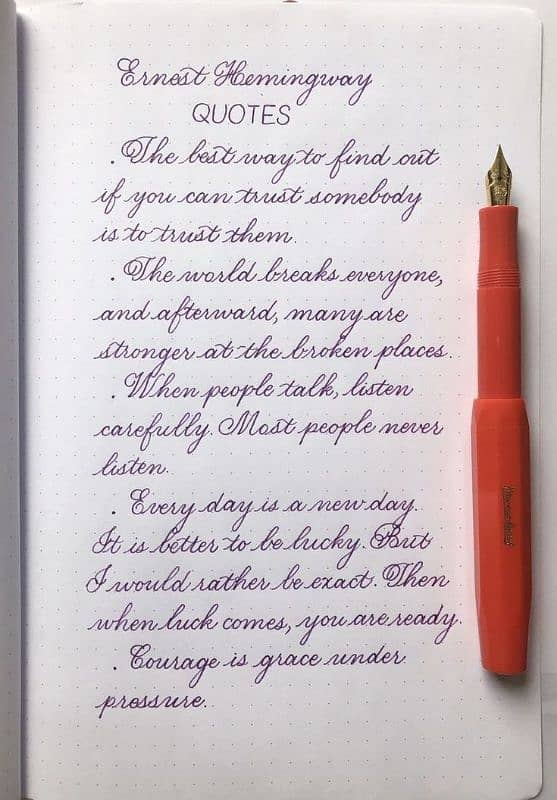 Ernest Hemingway
QUOTES
. The best way to find out
if you can trust somebody
is to trust them.
. The world breaks everyone,
and afterward, many are
stronger at the broken places.
. When people talk, listen
carefully. Most people never
listen.
. Every day is a new day.
It is better to be lucky. But
I would rather be exact. Then
when luck comes, you are ready.
. Courage is grace under
pressure.